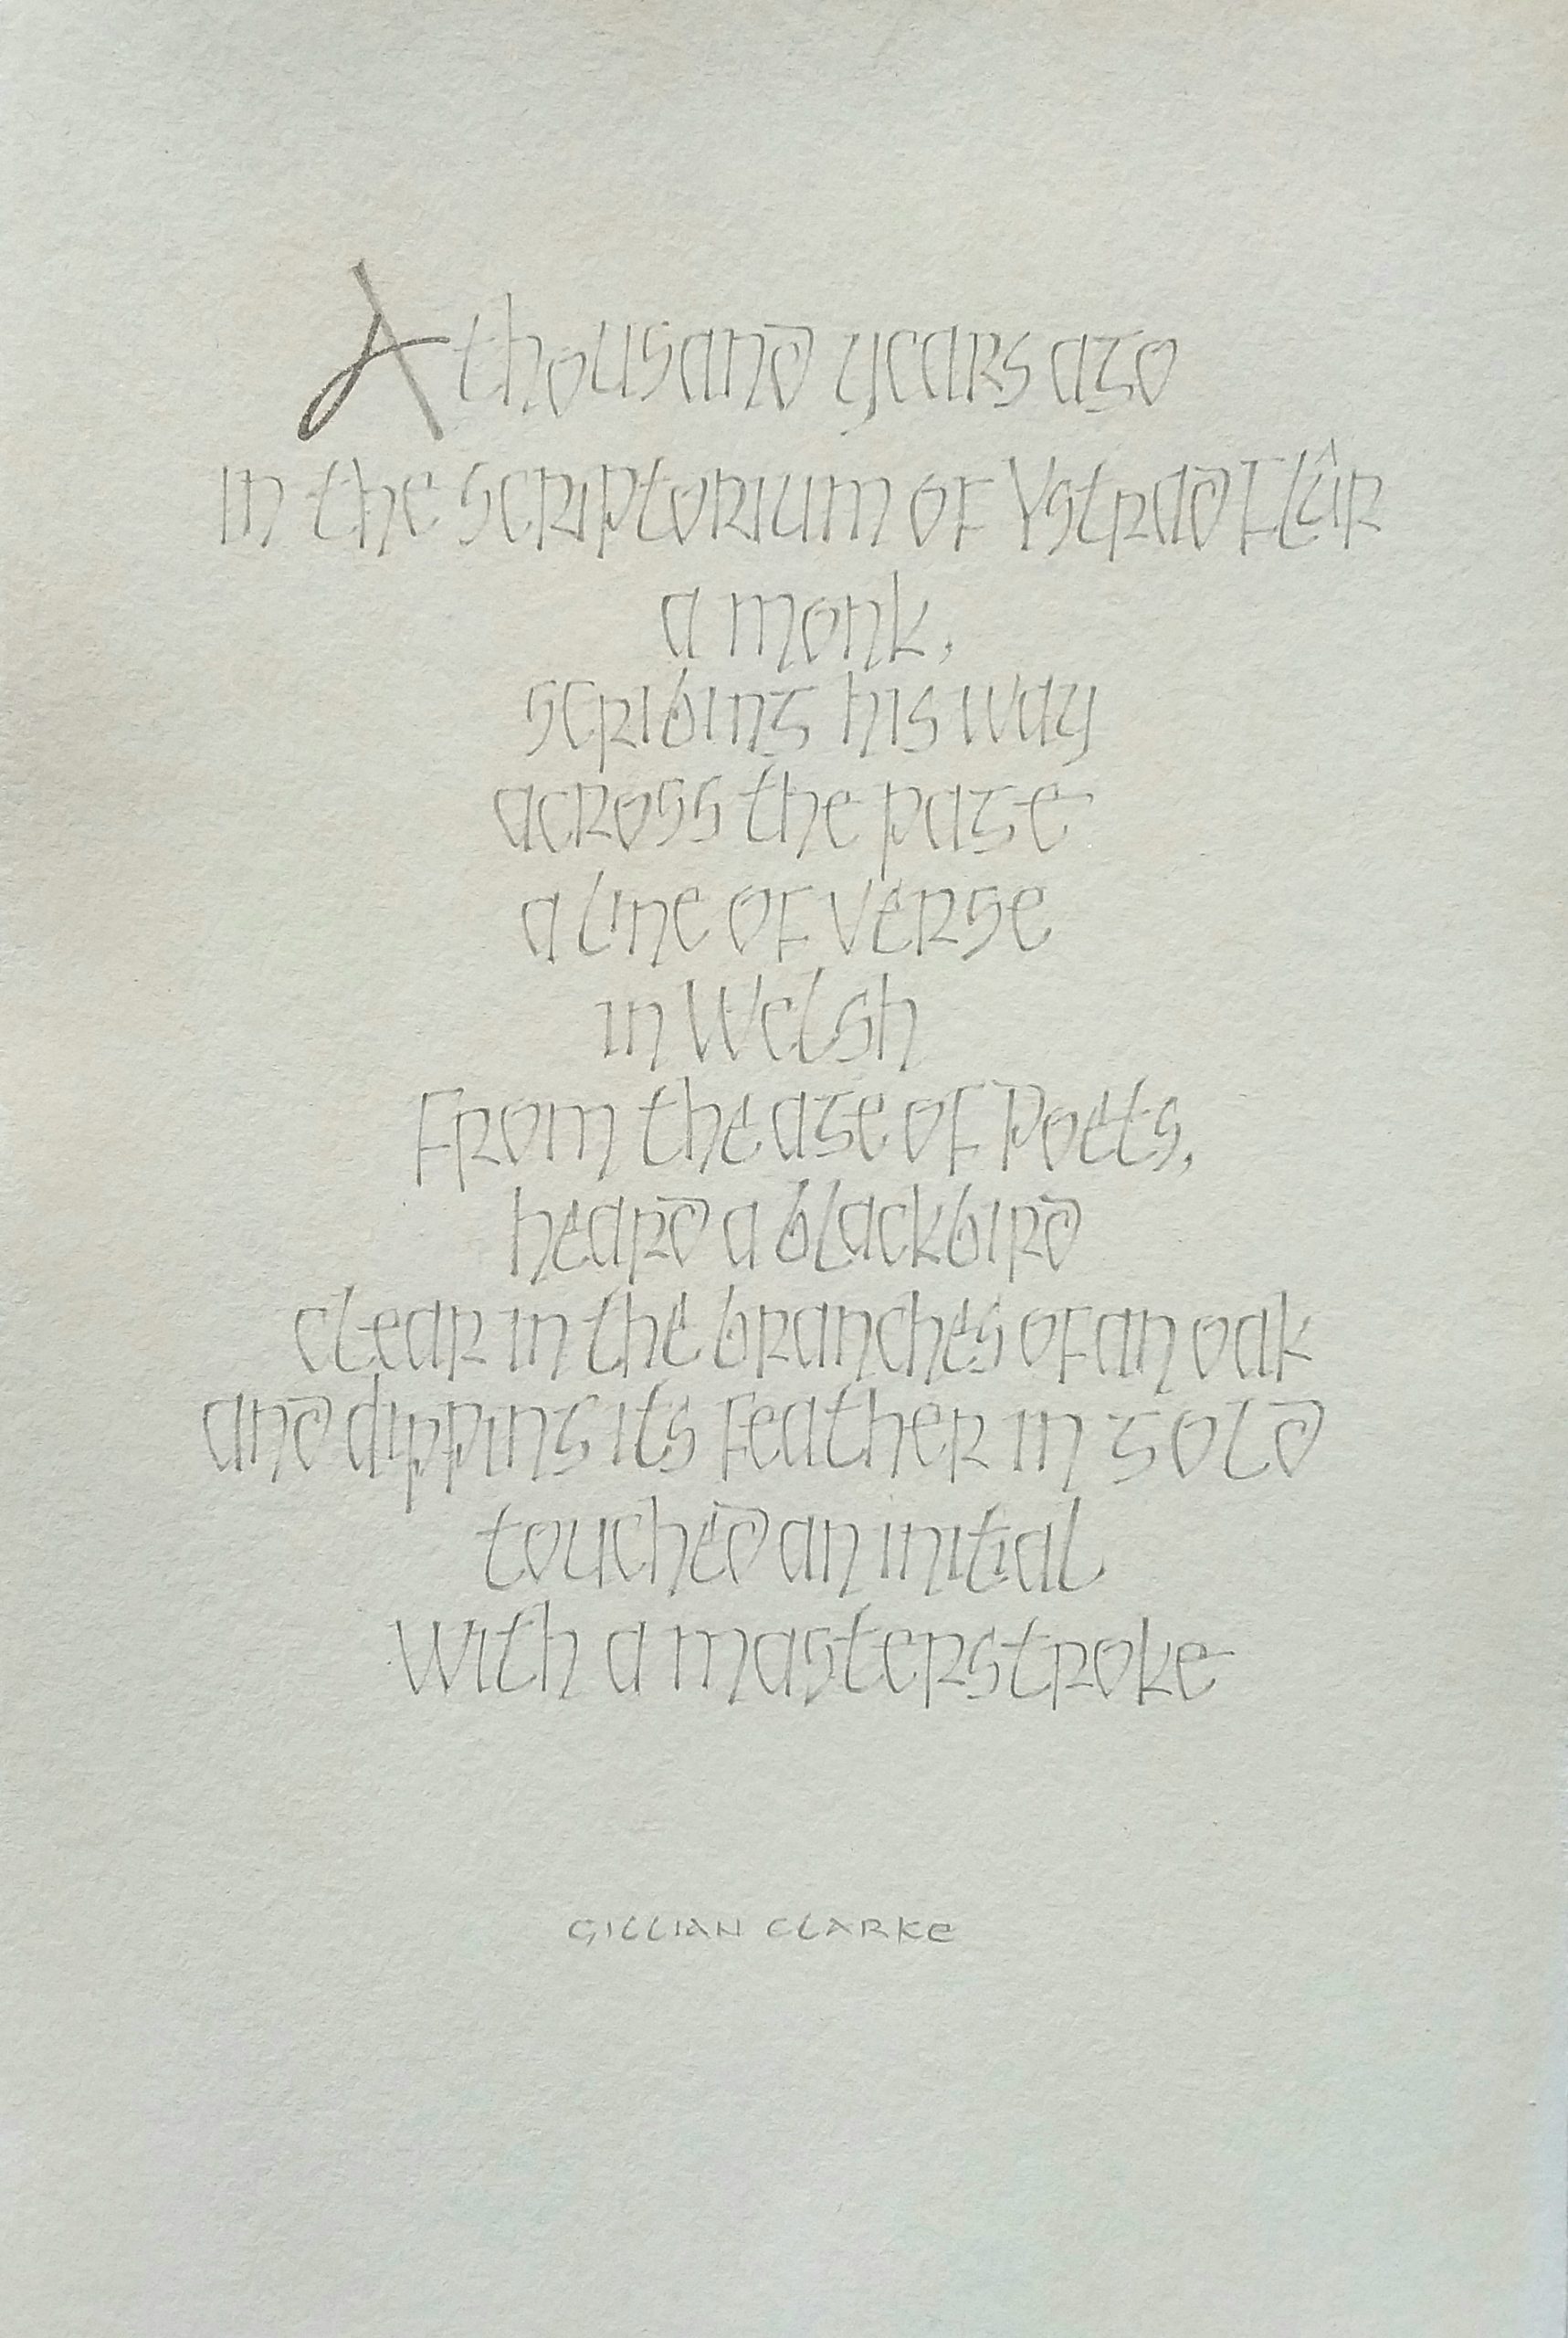 A thousand years ago
in the scriptorium of Ystrad Flûr
a monk,
scribing his way
across the page
a line of verse
in Welsh
From the age of Poets,
heard a blackbird
clear in the branches of an oak
and dipping its feather in gold
touched an initial
with a masterstroke
GILLIAN CLARKE